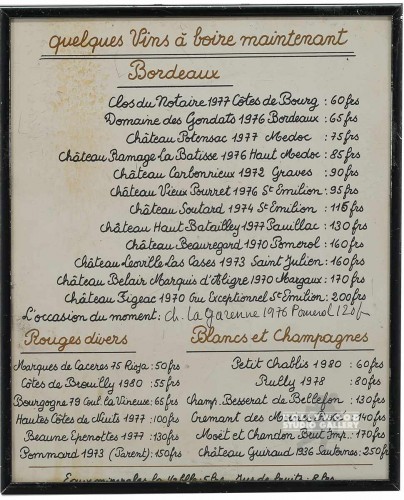 quelques Vins à boire maintenant
Bordeaux
Clos du Notaire 1977 Côtes de Bourg : 60frs
Domaine des Gondats 1976 Bordeaux : 65frs
Château Potensac 1977 Medoc : 75frs
Château Ramage la Batisse 1976 Haut Medoc : 85frs
Château Carbonrieux 1972 Graves : 90frs
Château Vieux Pourret 1976 St Emilion : 95frs
Château Soutard 1974 St Emilion : 115frs
Château Haut Batailley 1977 Pauillac : 130frs
Château Beauregard 1970 Pomerol : 140frs
Château Leoville Las Cases 1973 Saint Julien : 160frs
Château Belair Marquis d'Aligre 1970 Margaux : 170frs
Château Figeac 1970 Cru Exceptionnel St Emilion : 200frs
L'occasion du moment : Ch. La Garenne 1976 Pomerol 120f
Rouges divers
Marques de Caceres 75 Rioja : 50frs
Côtes de Brouilly 1980 : 55frs
Bourgogne 79 Cou la Vineuse : 65frs
Hautes Côtes de Nuits 1977 : 100frs
Beaune Epenottes 1977 : 130frs
Pommard 1973 (Parent) : 150frs
Blancs et Champagnes
Petit Chablis 1980 : 60frs
Rully 1978 : 80frs
Champ. Besserat de Bellefon : 130frs
Cremant des : 140frs
Moët et Chandon Brut Imp. : 170frs
Château Guiraud 1936 Sauternes : 250frs
STUDIO GALLERY
Eaux minerales la : 5frs Jus de fruits : 8frs